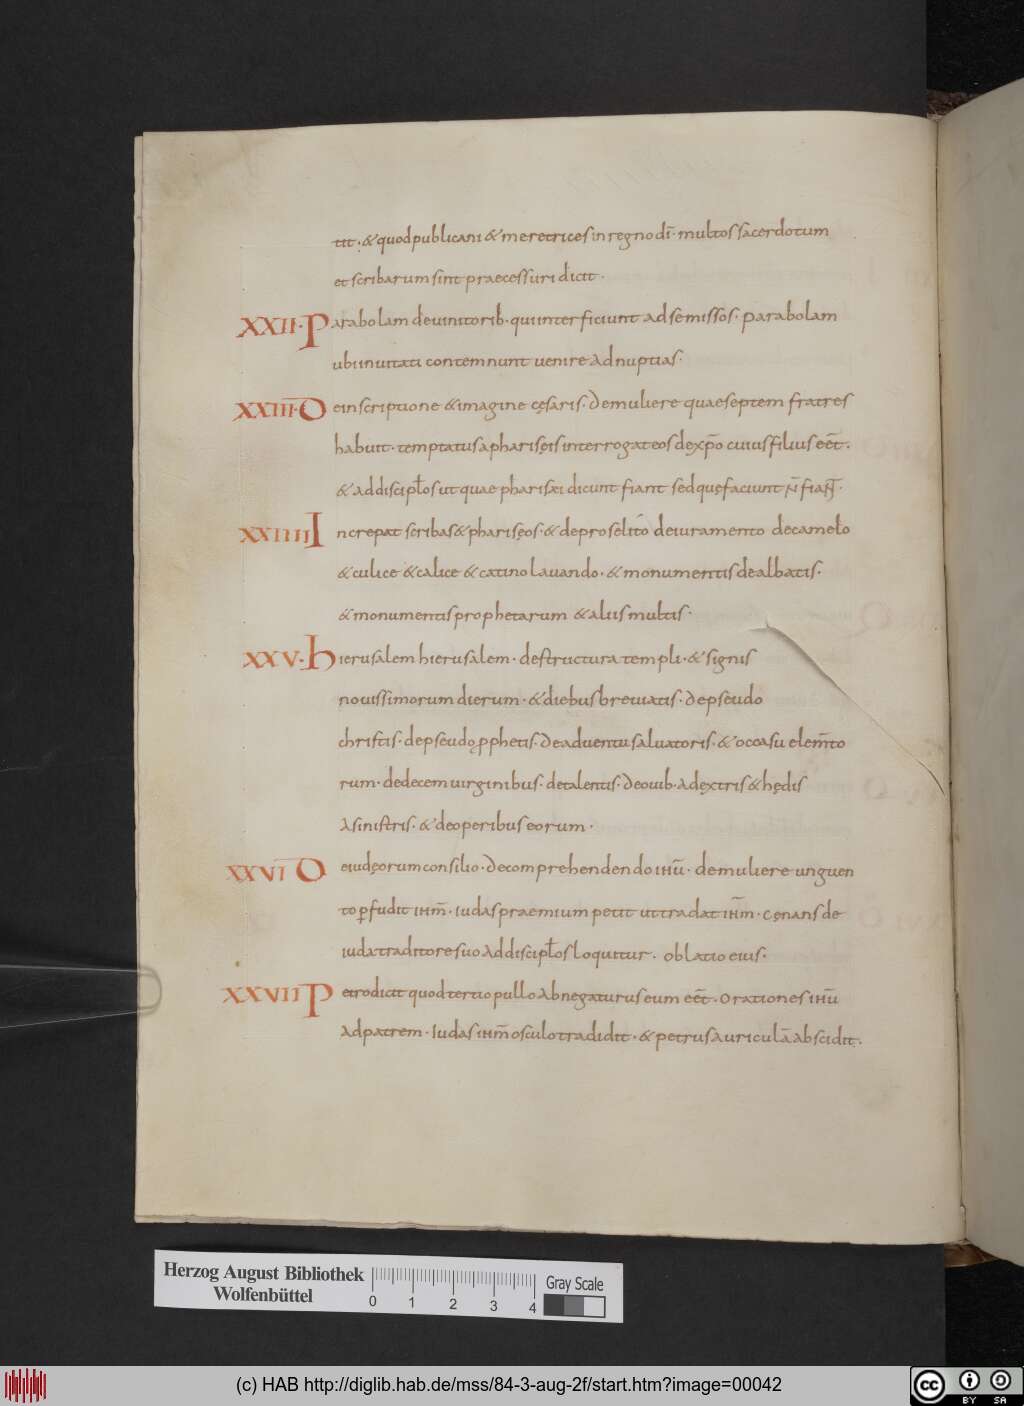 tit · & quod publicani & meretrices in regno dī · multos sacerdotum
et scribarum sint praecessuri dicit ·
XXII · Parabolam de uinitorib · qui interficiunt ad se missos · parabolam
ubi inuitati contemnunt uenire ad nuptias ·
XXIII · De inscriptione & imagine cęsaris · de muliere quae septem fratres
habuit · temptatus a pharisęis interrogat eos de xp̄o cuius filius eēt ·
& ad discipłos ut quae pharisæi dicunt fiant sed quę faciunt n̄ fian̄t ·
XXIIII Increpat scribas & pharisęos · & de proselito de iuramento de camelo
& culice & calice & catino lauando · & monumentis dealbatis ·
& monumentis prophetarum & aliis multis ·
XXV · Hierusalem hierusalem · destructura templi · & signis
nouissimorum dierum · & diebus breuiatis · de pseudo
christis · de pseudo ꝓphetis · de aduentu saluatoris · & occasu elem̄to
rum · de decem uirginibus · de talentis · de ouib · a dęxtris & hędis
a sinistris · & de operibus eorum ·
XXVI De iudęorum consilio · de comprehendendo ihū · de muliere unguen
to ꝑfudit ihm̄ · iudas praemium petit ut tradat ihm̄ · cęnans de
iuda traditore suo ad discipłos loquitur · oblatio eius ·
XXVII Petro dicit quod tertio pullo abnegaturus eum eēt · orationes ihū
ad patrem · iudas ihm̄ osculo tradidit · & petrus auriculā abscidit ·
Herzog August Bibliothek
Wolfenbüttel
0 1 2 3 4
Gray Scale
(c) HAB http://diglib.hab.de/mss/84-3-aug-2f/start.htm?image=00042
cc BY SA